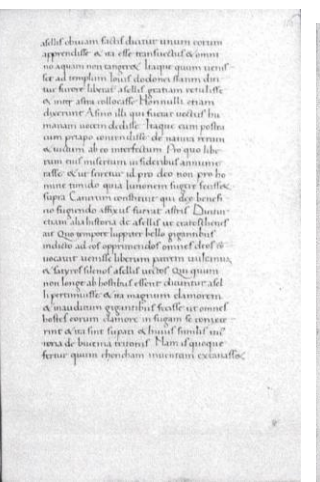 asellis obuiam factis dicitur unum eorum
apprendisse & ita esse transuectus ut omni
no aquam non tangeret. Itaque quum uenis
set ad templum Iouis dodonei statim dici
tur furore liberatus asellis gratiam retulisse
& inter astra collocasse Nonnulli etiam
dixerunt Asino illi qui fuerat uectus hu
manam uocem dedisse Itaque eum postea
cum priapo contendisse de natura rerum
& uictum ab eo interfectum Pro quo libe
rum eius misertum in sideribus annume
rasse & ut sciretur id pro deo non pro ho
mine timido quia Iunonem fugere fecisse
supra Cancrum constituit qui deae benefi
cio fuerat affixus astris Dicitur
etiam alia historia de asellis ut eratosthenes
ait Quo tempore Iuppiter bello gigantibus
indicto ad eos opprimendos omnes deos co
uocauit uenisse liberum patrem uulcanum
& satyros silenos asellis uectos Qui quum
non longe ab hostibus essent dicuntur asel
li pertimuisse & ita magnum clamorem
& inauditum gigantibus fecisse ut omnes
hostes eorum clamore in fugam se coniece
rint & ita sint superati & huius similis his
toria de bucina tritonis Nam is quoque
fertur quum concham inuentam excauasset